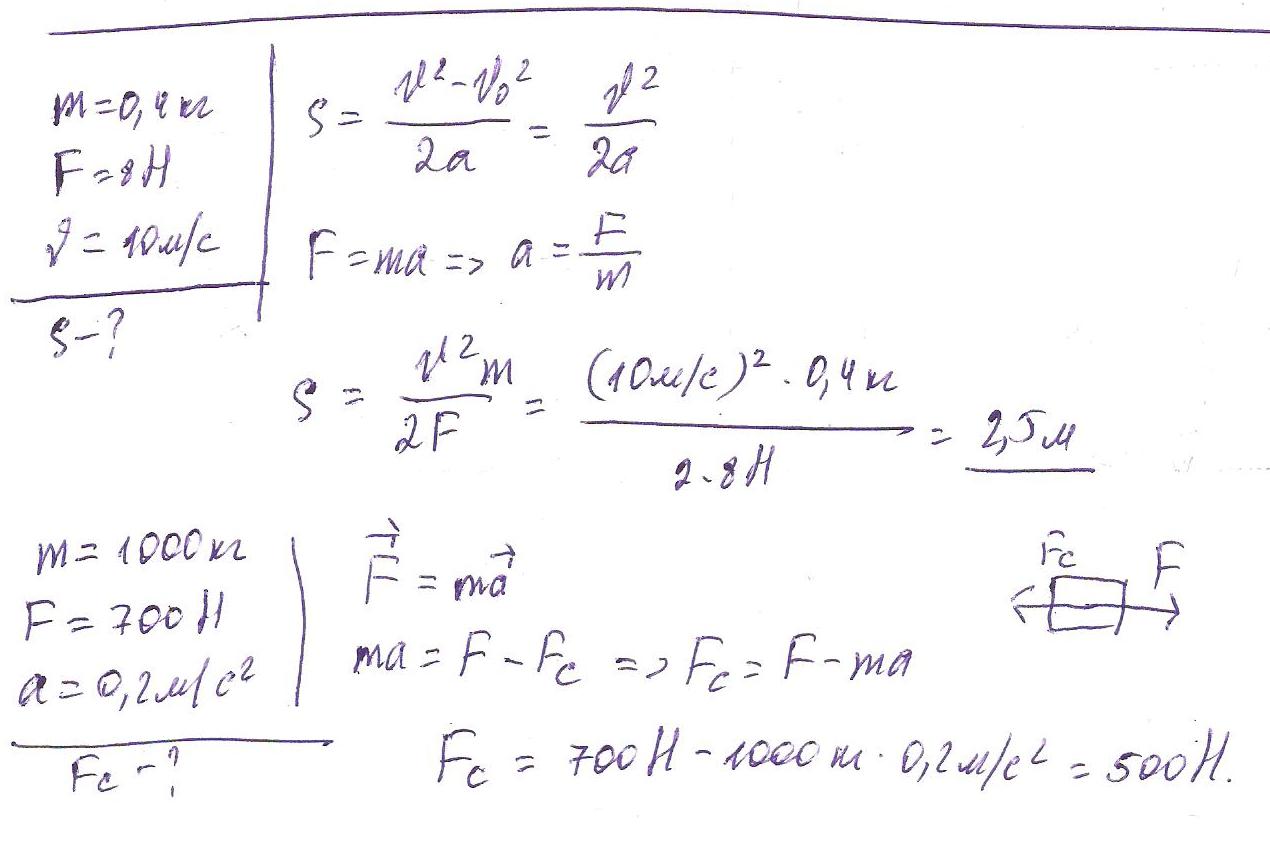 m=0,4 кг
F=8Н
v=10м/с
S-?
S = (v²-v₀²)/(2a) = v²/(2a)
F=ma => a = F/m
S = (v²m)/(2F) = ((10м/с)² · 0,4 кг)/(2·8Н) = 2,5м
m=1000кг
F=700Н
a=0,2м/с²
Fc-?
F⃗ = ma⃗
ma = F - Fc => Fc = F - ma
Fc F
Fc = 700Н - 1000 кг · 0,2м/с² = 500Н.